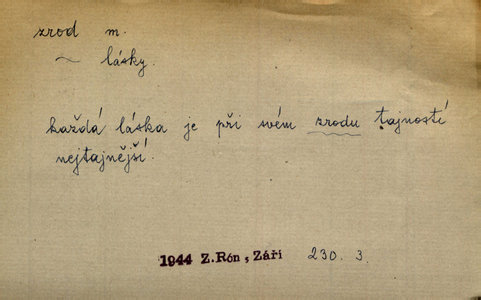 zrod m.
~ lásky.
každá láska je při svém zrodu tajností
nejtajnější.
1944 Z.Rón, Září 230. 3.